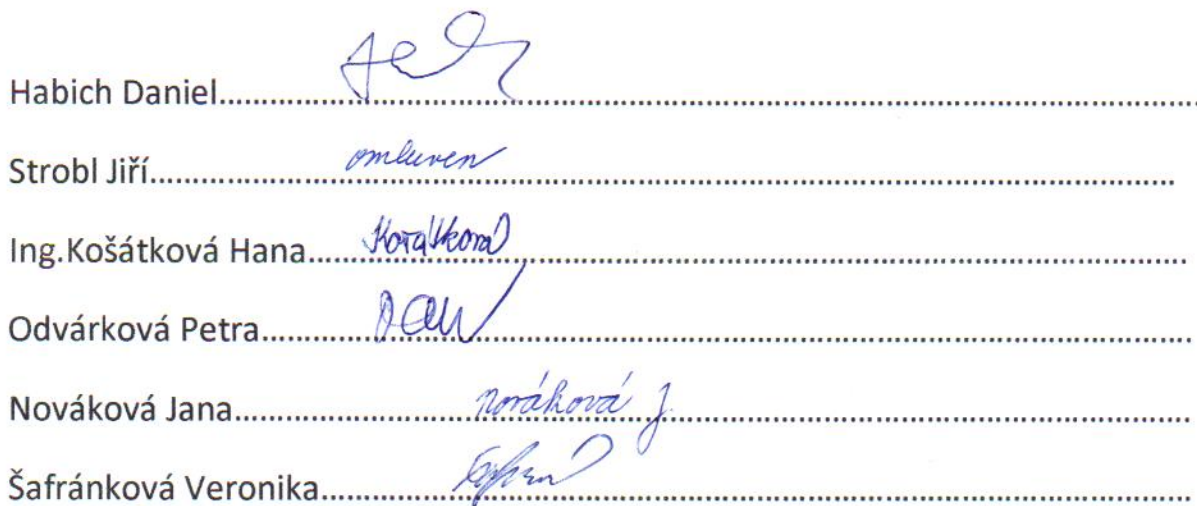 Habich Daniel..........
Strobl Jiří.......... omluven
Ing.Košátková Hana.......... Košátková
Odvárková Petra..........
Nováková Jana.......... Nováková J.
Šafránková Veronika..........